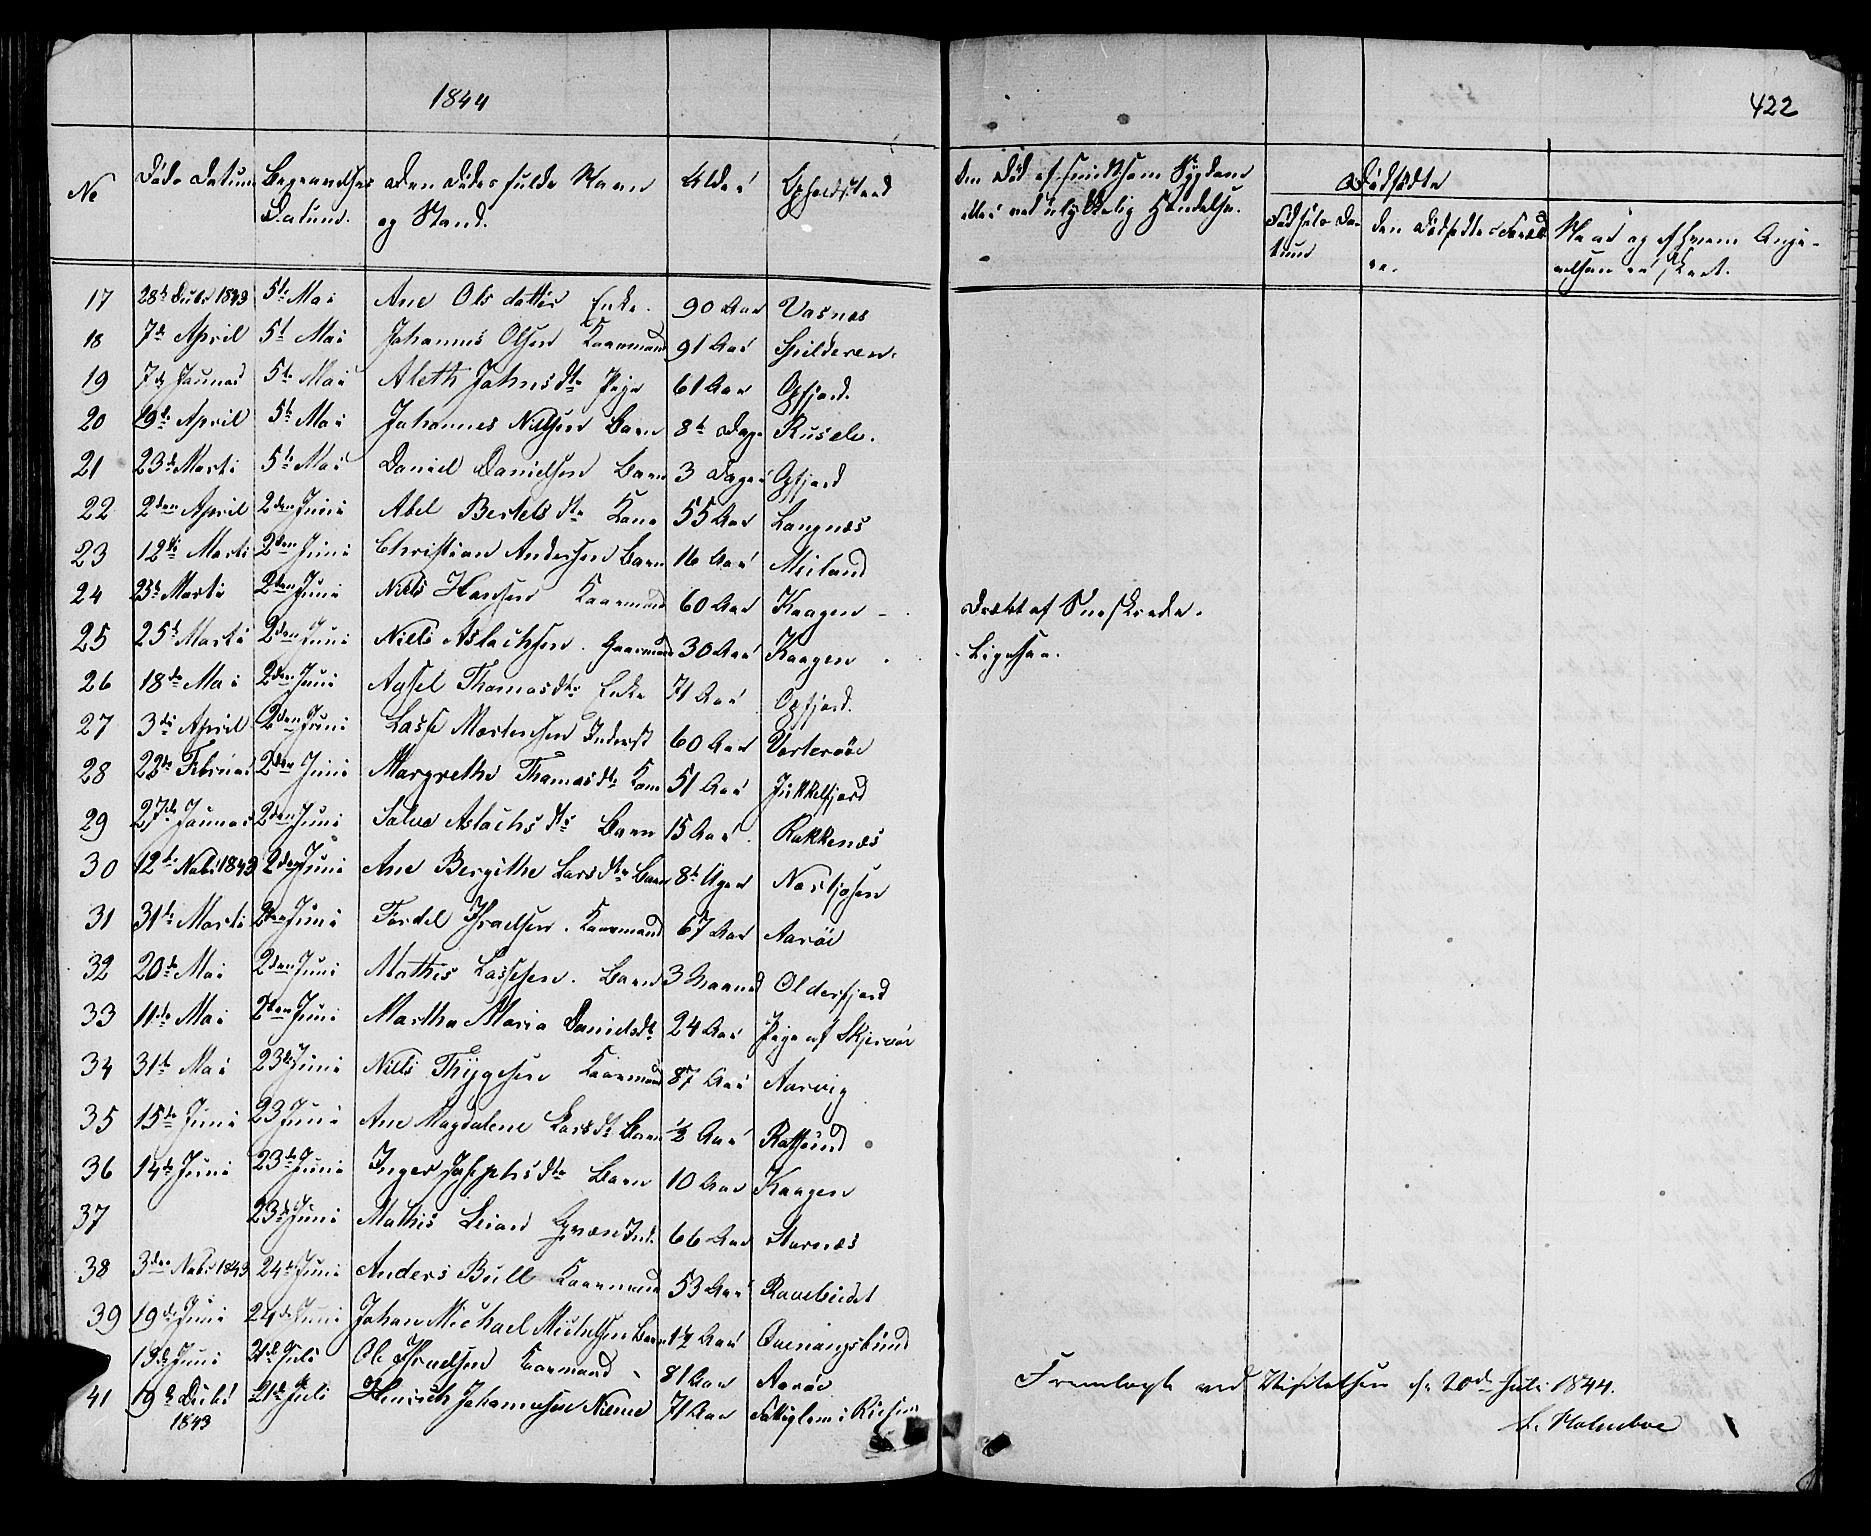 1844
422
No Døds Datum Begravelses Datum. Den Dødes fulde Navn og Stand. Alder Opholdsted Om Død af smitsom Sygdom eller ved ulykkelig Hændelse. Dødfødte
Fødsels Datum Den Dødfødtes Forældre. Naar og af hvem Angivelsen er skeet.
17 28de Decbr 1843 5te Mai Ane Olsdatter Enke. 90 Aar Vasnæs
18 7de April 5te Mai Johannes Olsen Kaarmand 91 Aar Spilderen.
19 7de Januar 5te Mai Aleth Johnsdtr Pige 61 Aar Oxfjord.
20 19de April 5te Mai Johannes Nilssen Barn 8te Dage Ruselv.
21 23de Marti 5te Mai Daniel Danielsen Barn 3 Dage Oxfjord
22 2den April 2den Juni Abel Bertelsdtr Kone 55 Aar Langnæs
23 12te Marti 2den Juni Christian Andersen Barn 16 Aar Meiland
24 25de Marti 2den Juni Niels Hansen Kaarmand 60 Aar Kaagen - Dræbt af Sneskrede.
25 25de Marti 2den Juni Niels Aslachsen. Gaarmand 30 Aar Kaagen. Ligesaa.
26 18de Mai 2den Juni Axsel Thomasdtr Enke 71 Aar Oxfjord.
27 3die April 2den Juni Lasse Mortensen Inderst 60 Aar Vorterøe
28 28de Februar 2den Juni Margrethe Thomasdtr Kone 51 Aar Jøkkelfjord
29 27de Januar 2den Juni Salve Aslachsdtr Barn 15 Aar Rakkenæs
30 12te Nobr 1843 2den Juni Ane Bergithe Larsdtr Barn 8te Uger
31 31te Marti 2den Juni Fordel Israelsen. Kaarmand 67 Aar Aarøe
32 20de Mai 2den Juni Mathis Lassesen. Barn 3 Maaned Olderfjord
33 11te Mai 2den Juni Martha Maria Danielsdtr 24 Aar Pige af Skjervøe
34 31te Mai 23de Juni Niels Thygesen Kaarmand 87 Aar Aarvig
35 15de Juni 23 Juni Ane Magdalene Larsdtr Barn ½ Aar Rotsund
36 14de Juni 23de Juni Inger Josephsdtr Barn 10 Aar Kaagen
37 23de Juni Mathis Qvæn Ind. 66 Aar Starnæs
38 3die Nobr 1843 24de Juni Anders Bull Kaarmand 53 Aar Ravelseidet
39 19de Juni 24de Juni Johan Michael Barn Aar Qvænangsbund
19de Juni 21de Juli Ole Israelsen Kaarmand 81 Aar Aarøe
41 19de Decbr 1843 21de Juli Henrich Johannesen 71 Aar Fattiglem i
Fremlagt ved Visitatsen d. 20de Juli 1844.
L. Holmboe